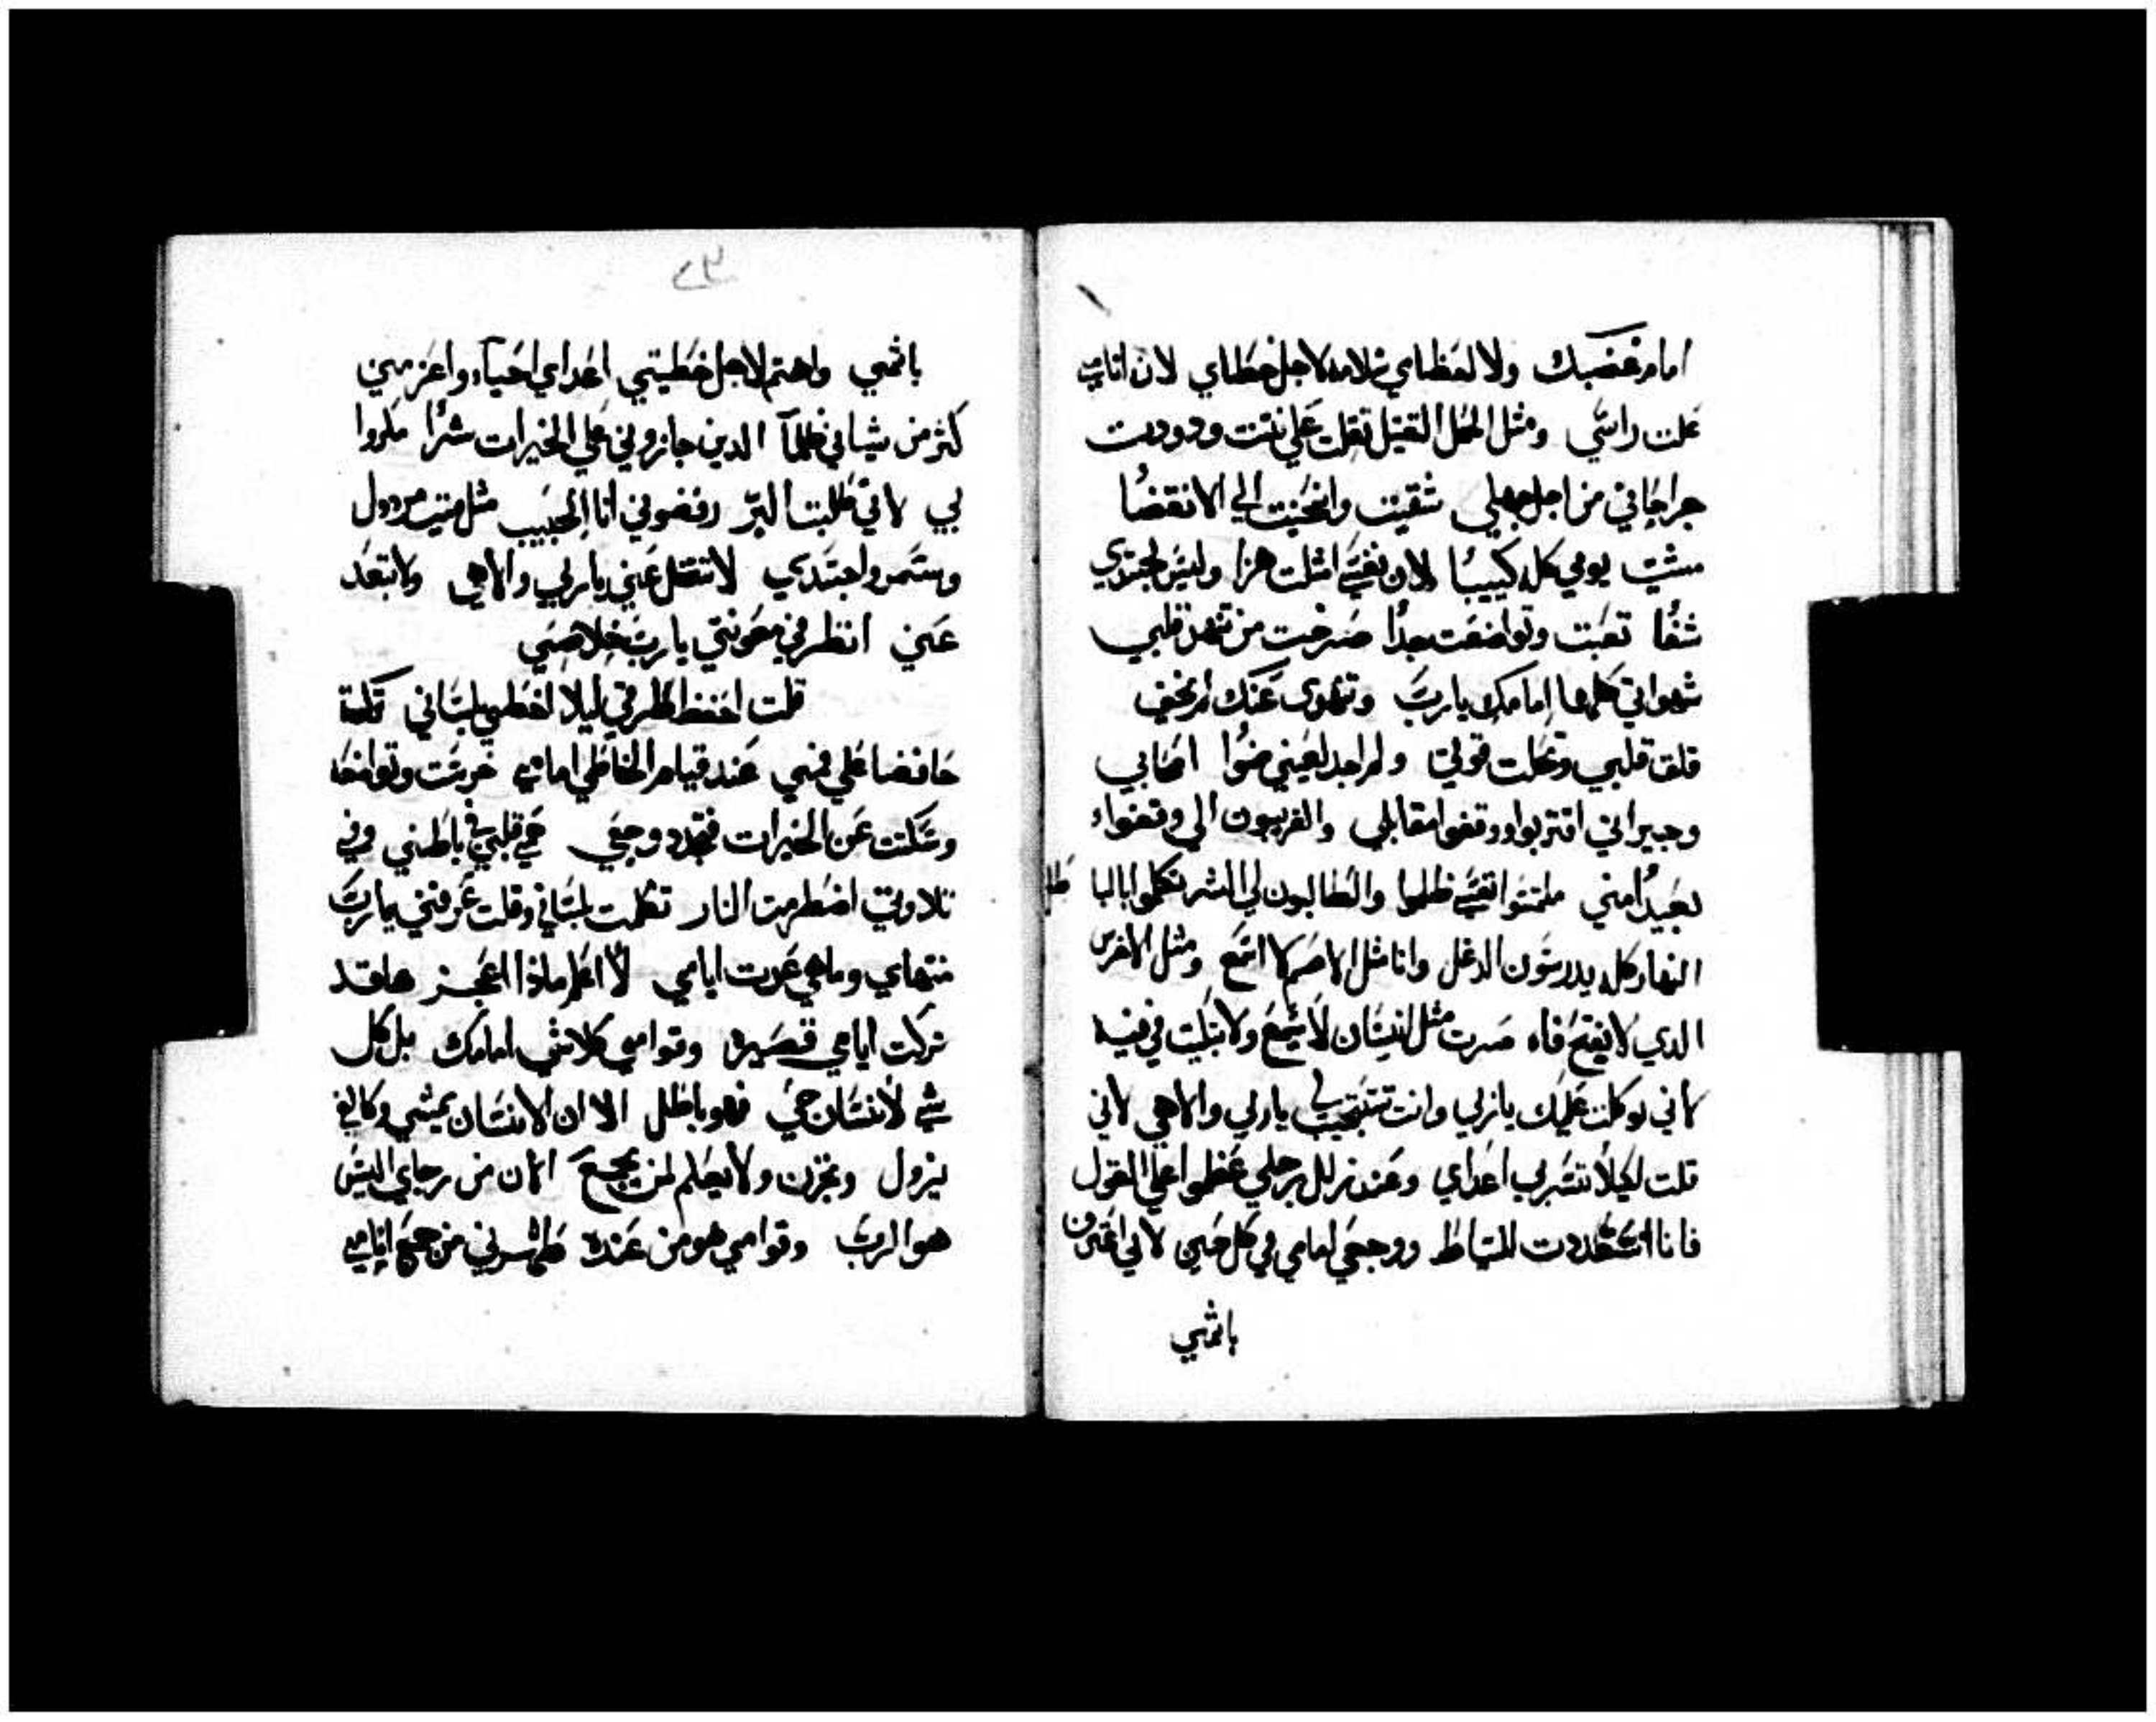 امام غضبك ولا لعظامي سلامه لاجل خطاي لان اتامي
علت راسي ومثل الحمل التقيل تقلت علي نتنت ودودت
جراحاتي من اجل جهلي شقيت وانحنيت الي الانقضا
مشيت يومي كله كييبا لان نفسي امتلت هزا وليس لجسدي
شفا تعبت وتواضعت جدا صرخت من تنهد قلبي
شهواتي كلها امامك يارب وتنهدي عنك لم يخفي
قلق قلبي وتخلت قوتي ولم اجد لعيني ضوا اصحابي
وجيراني اقتربوا ووقفوا مقابلي والقريبون الي وقفوا
بعيدا مني ملتمسوا نفسي ظلموا والطالبون لي الشر تكلموا بالباطل
النهار كله يدرسون الدغل وانا مثل الاصم لا اسمع ومثل الاخرس
الدي لا يفتح فاه صرت مثل انسان لا يسمع ولا تبكيت في فيه
لاني توكلت عليك يا ربي وانت تستجيب لي يا ربي والاهي لاني
قلت ليلا تسر بي اعداي وعند زلل رجلي عظموا علي القول
فانا استعددت للسياط ووجعي امامي في كل حين لاني اعترف
باتمي
٤٣
باتمي واهتم لاجل خطيتي اعداي احياء واعز مني
كثر من يشاني ظلما الدين جازوني علي الخيرات شرا مكروا
بي لاني طلبت البر رفضوني انا الحبيب مثل ميت مردول
وسمروا جسدي لا تتقل عني يا ربي والاهي ولا تبعد
عني انظر في معونتي يا رب خلاصي
قلت احفظ طرقي ليلا اخطي بلساني تركت
حافضا علي فمي عند قيام الخاطي امامي خرست وتواضعت
وسكتت عن الخيرات فتجدد وجعي حمي قلبي في باطني وفي
تلاوتي اضطرمت النار تكلمت بلساني وقلت عرفني يا رب
منتهاي وما هي عدت ايامي لا اعلم ماذا اعجز هاقد
تركت ايامي قصيره وقوامي كلاشي امامك بل كل
شي لانسان حي فهو باطل الا ان الانسان يمشي وكالفي
يزول ويخزن ولا يعلم لمن يجمع الان من رجاي اليس
هو الرب وقوامي هو من عنده طهرني من جميع اتامي